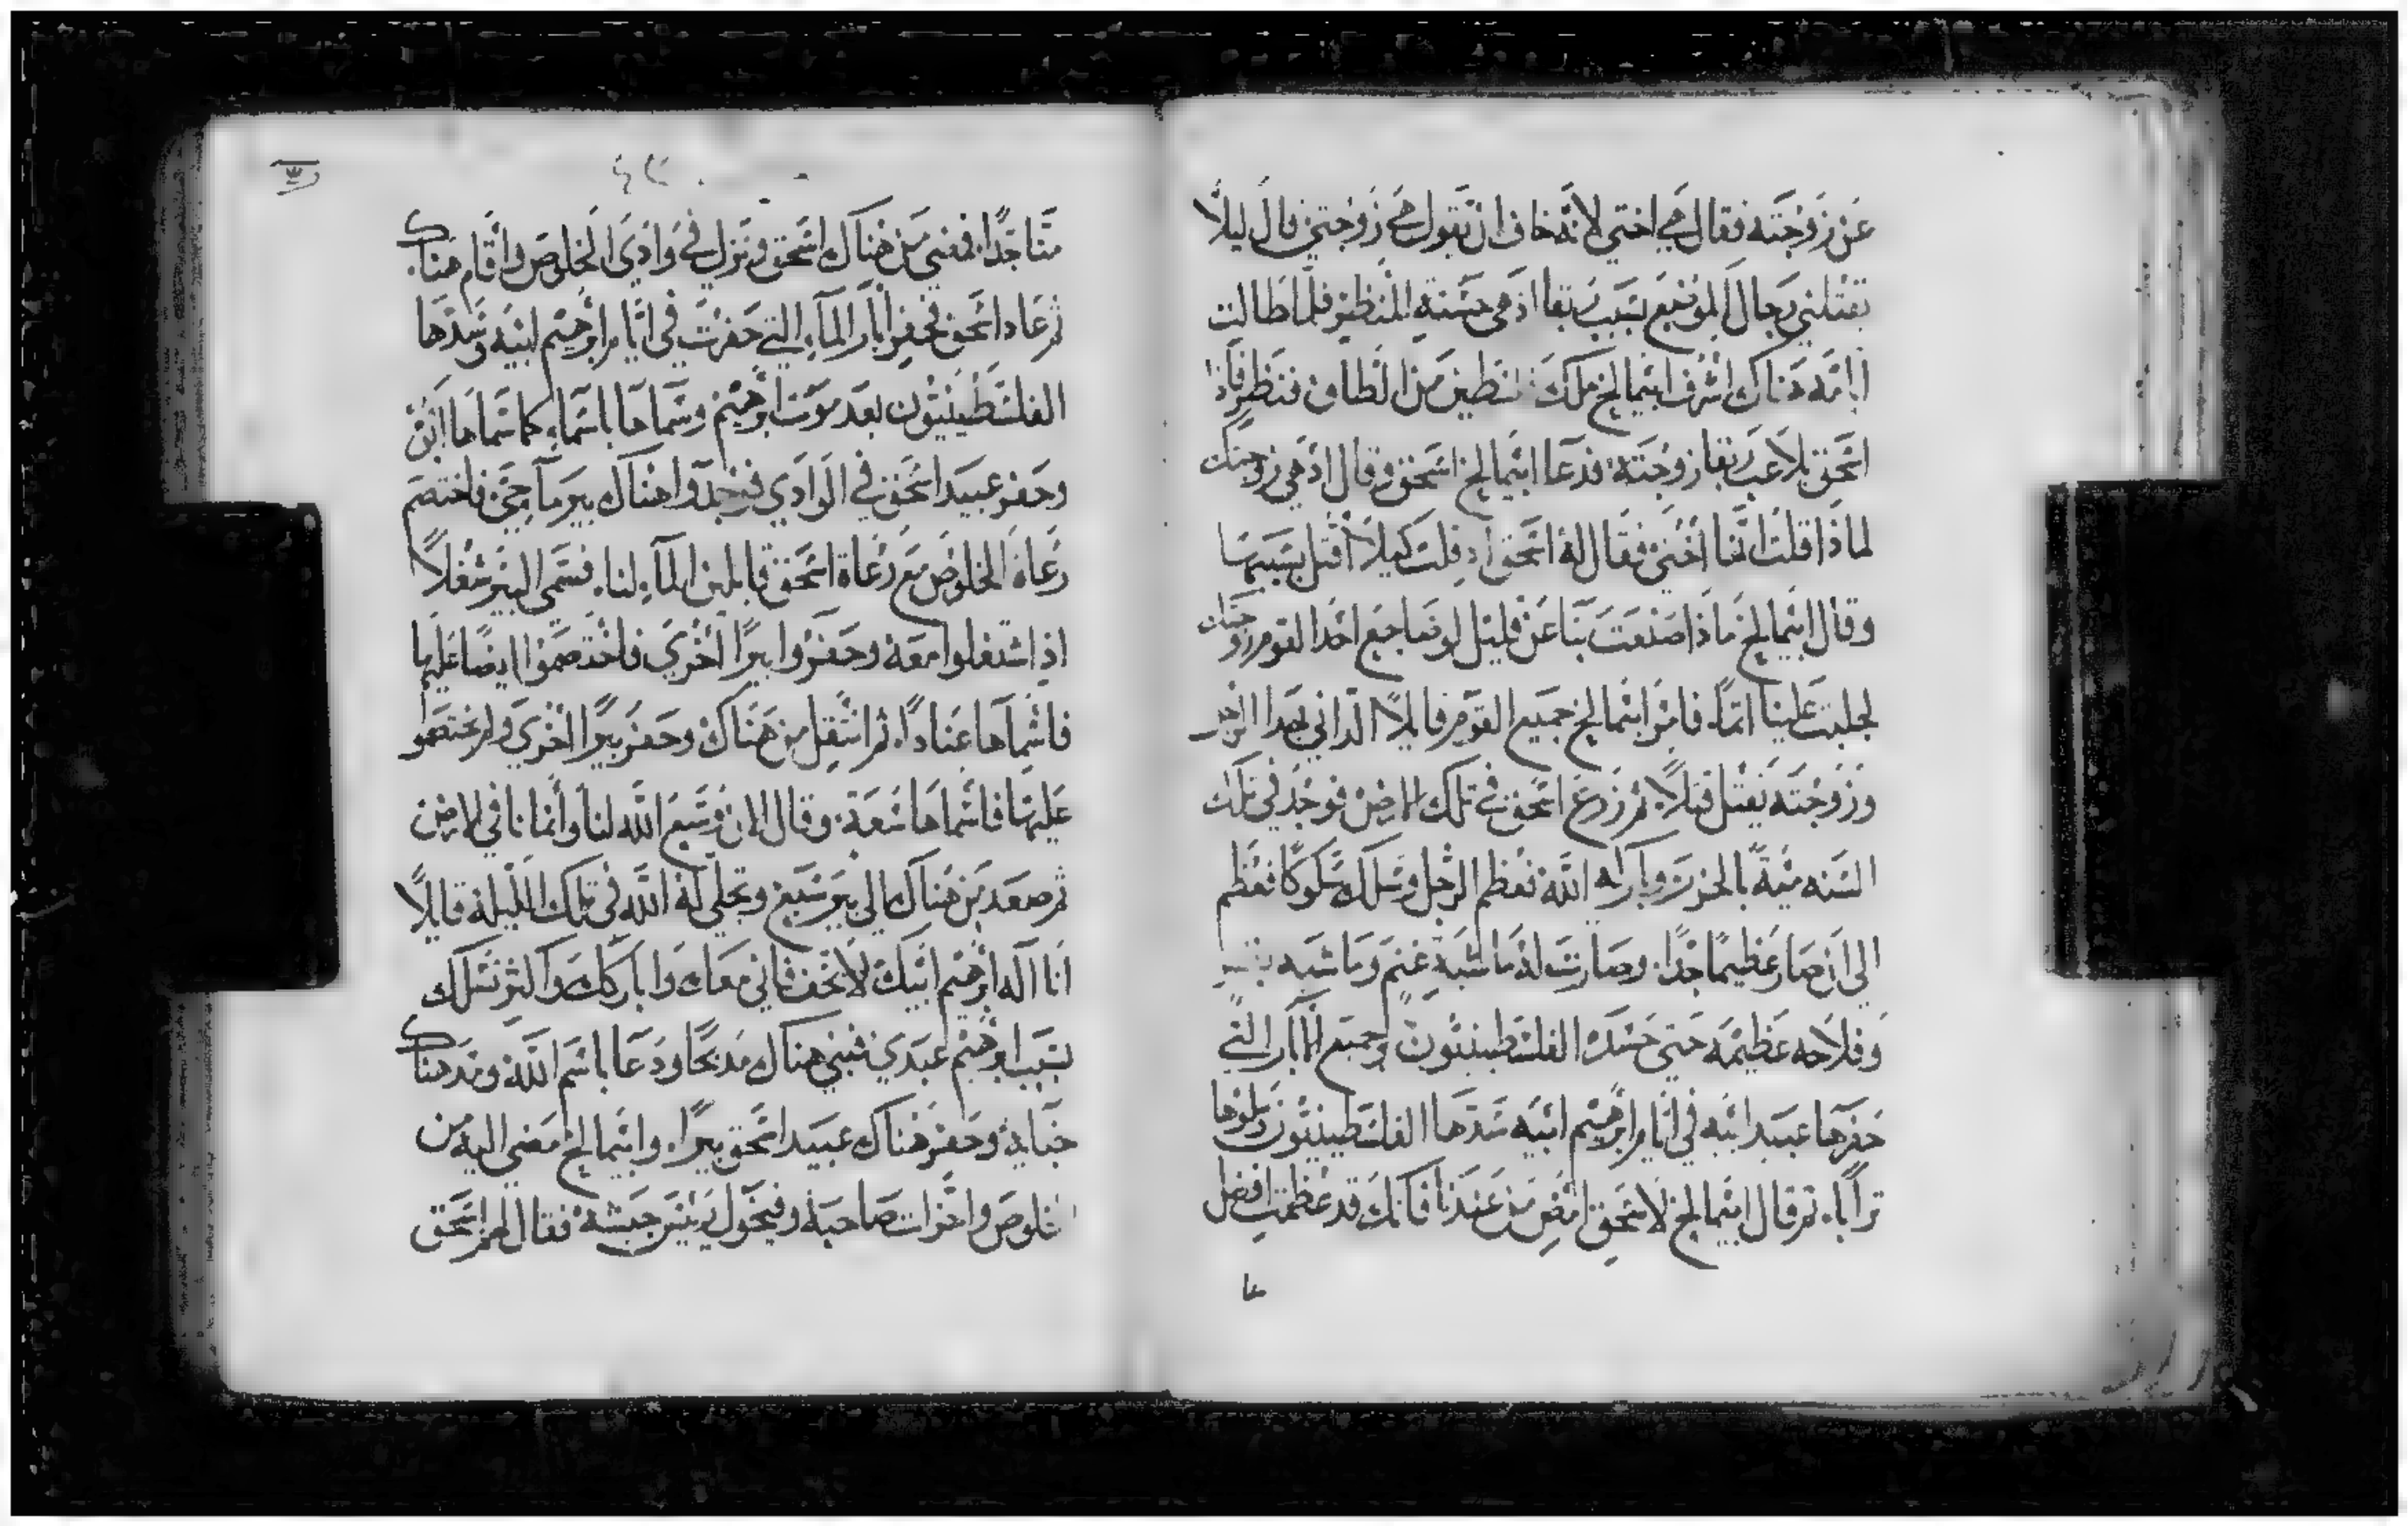 عن زوجته فقال هي اختي لانه خاف ان يقول هي زوجتي قال ليلا
تقتلني رجال الموضع بسبب ربقا اذ هي حسنة المنظر فلما طالت
ايامه هناك اشرف ابيمالخ ملك من الطاق فنظر فاذا
اسحق يلاعب ربقا زوجته فدعا ابيمالخ اسحق وقال اذ هي زوجتك
لماذا قلت انها اختي فقال له اسحق اذ قلت كيلا اقتل بسببها
وقال ابيمالخ ماذا صنعت بنا عن قليل لو ضاجع احد القوم زوجتك
لجلبت علينا اثما. فامر ابيمالخ جميع القوم قايلا الداني بهذا الرجل
وزوجته يقتل قتلا. ثم زرع اسحق في تلك الارض فوجد في تلك
السنه مية بالحزر وباركه الله فعظم الرجل وسلك سلوكا فعظم
الي ان صار عظيما جدا. وصارت له ماشية غنم وماشيه بقر
وفلاحه عظيمه حتي حسده الفلسطينيون وجميع الابار التي
حفرها عبيد ابيه في ايام ابرهيم ابيه سدها الفلسطينيون وملوها
ترابا. ثم قال ابيمالخ لاسحق امض من عندنا فانك قد عظمت افضل
منا جدا. فمضي من هناك اسحق ونزل في وادي الخلوص واقام هناك
ثم عاد اسحق فحفر ابار الماء التي حفرت في ايام ابرهيم ابيه وسدها
الفلسطينيون بعد موت ابرهيم وسماها باسماء كما سماها ابن
وحفر عبيد اسحق في الوادي فوجدوا هناك بير ما حي فاختصم
رعاة الخلوص مع رعاة اسحق قايلين الماء لنا. فسمي البير شغلا
اذ اشتغلوا معه وحفروا بيرا اخري فاختصموا ايضا عليها
فاسماها عنادا. ثم انتقل من هناك وحفر بيرا اخري ولم يختصمو
عليها فاسماها سعة. وقال الان وسع الله لنا وأنمانا في الارض
ثم صعد من هناك الي بير سبع وتجلي له الله في تلك الليلة قايلا
انا اله ابرهيم ابيك لا تخف فاني معك واباركك واكثر نسلك
بسبب ابرهيم عبدي فبني هناك مذبحا ودعا باسم الله ومد هناك
خبايه وحفر هناك عبيد اسحق بيرا. وابيمالخ مضي اليه من
خلوص واحزات صاحبه وفيخول رييس جيشه فقال لهم اسحق